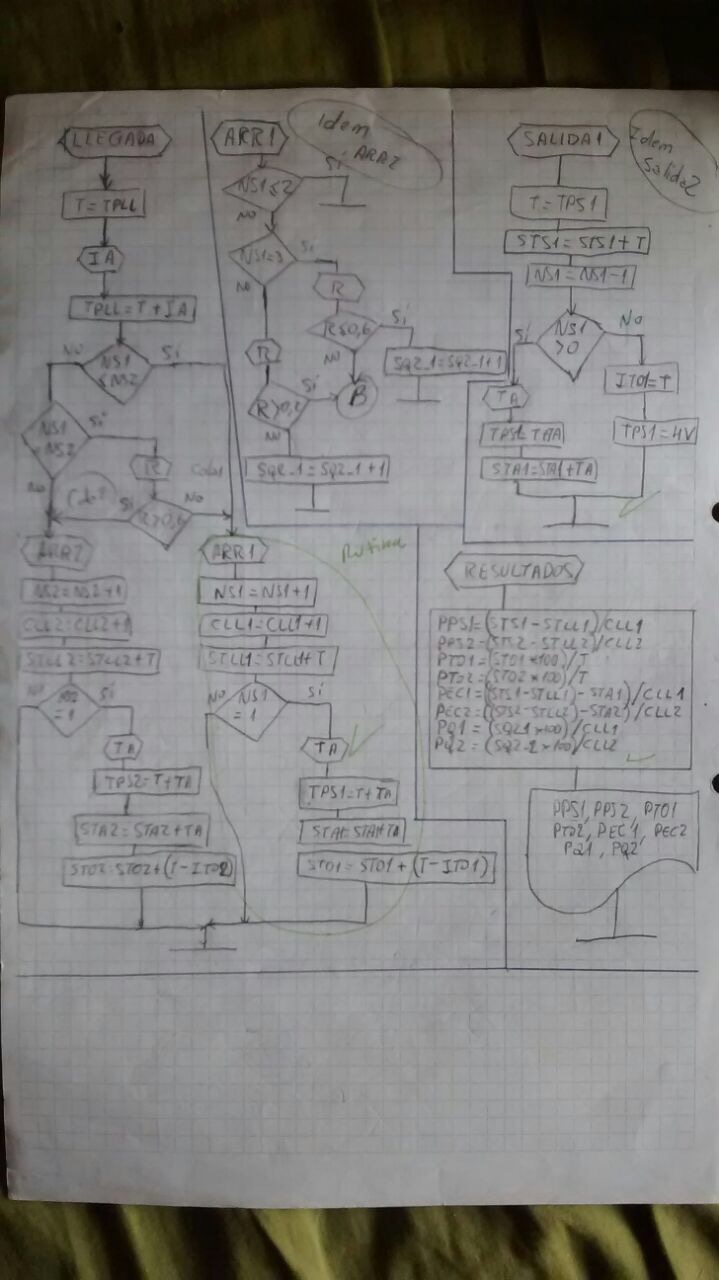 LLEGADA
T = TPLL
IA
TPLL = T + IA
NO
Sí
NS1
≤ NS2
NS1
NS2
Sí
No
R
Cola1
Sí
No
R>0,6
ARR2
NS2 = NS2+1
CLL2 = CLL2+1
STLL2 = STLL2+T
No
Sí
= 1
TA
TPS2 = T+TA
STA2 = STA2+TA
STO2 = STO2+(T-ITO2)
ARR1
Rutina
NS1 = NS1+1
CLL1 = CLL1+1
STLL1 = STLL1+T
No
NS1
= 1
Sí
TA
TPS1 = T+TA
STA1 = STA1+TA
STO1 = STO1 + (T-ITO1)
ARR1
Idem
ARR2
NS1≤2
Sí
NO
NS1=3
Sí
NO
R
R≤0,6
Sí
NO
SQ2_1=SQ2_1+1
B
R
Sí
NO
SQ2_1 = SQ2_1+1
SALIDA1
Idem
Salida2
T = TPS1
STS1 = STS1+T
NS1 = NS1-1
NS1
>0
Sí
No
ITO1=T
TPS1 = HV
TA
STA1=STA1+TA
RESULTADOS
PPS1 = (STS1 - STLL1)/CLL1
PPS2 = (STS2 - STLL2)/CLL2
PTO1 = (STO1 *100)/T
PTO2 = (STO2 *100)/T
PEC1 = ((STS1-STLL1)-STA1)/CLL1
PEC2 = ((STS2-STLL2)-STA2)/CLL2
PQ1 = (SQ2_1*100)/CLL1
PQ2 = (SQ2_2*100)/CLL2
PPS1, PPS2, PTO1
PTO2, PEC1, PEC2
PQ1, PQ2